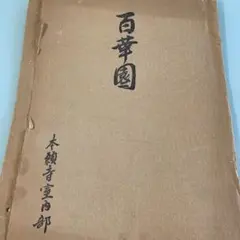 百華園
本願寺室内部